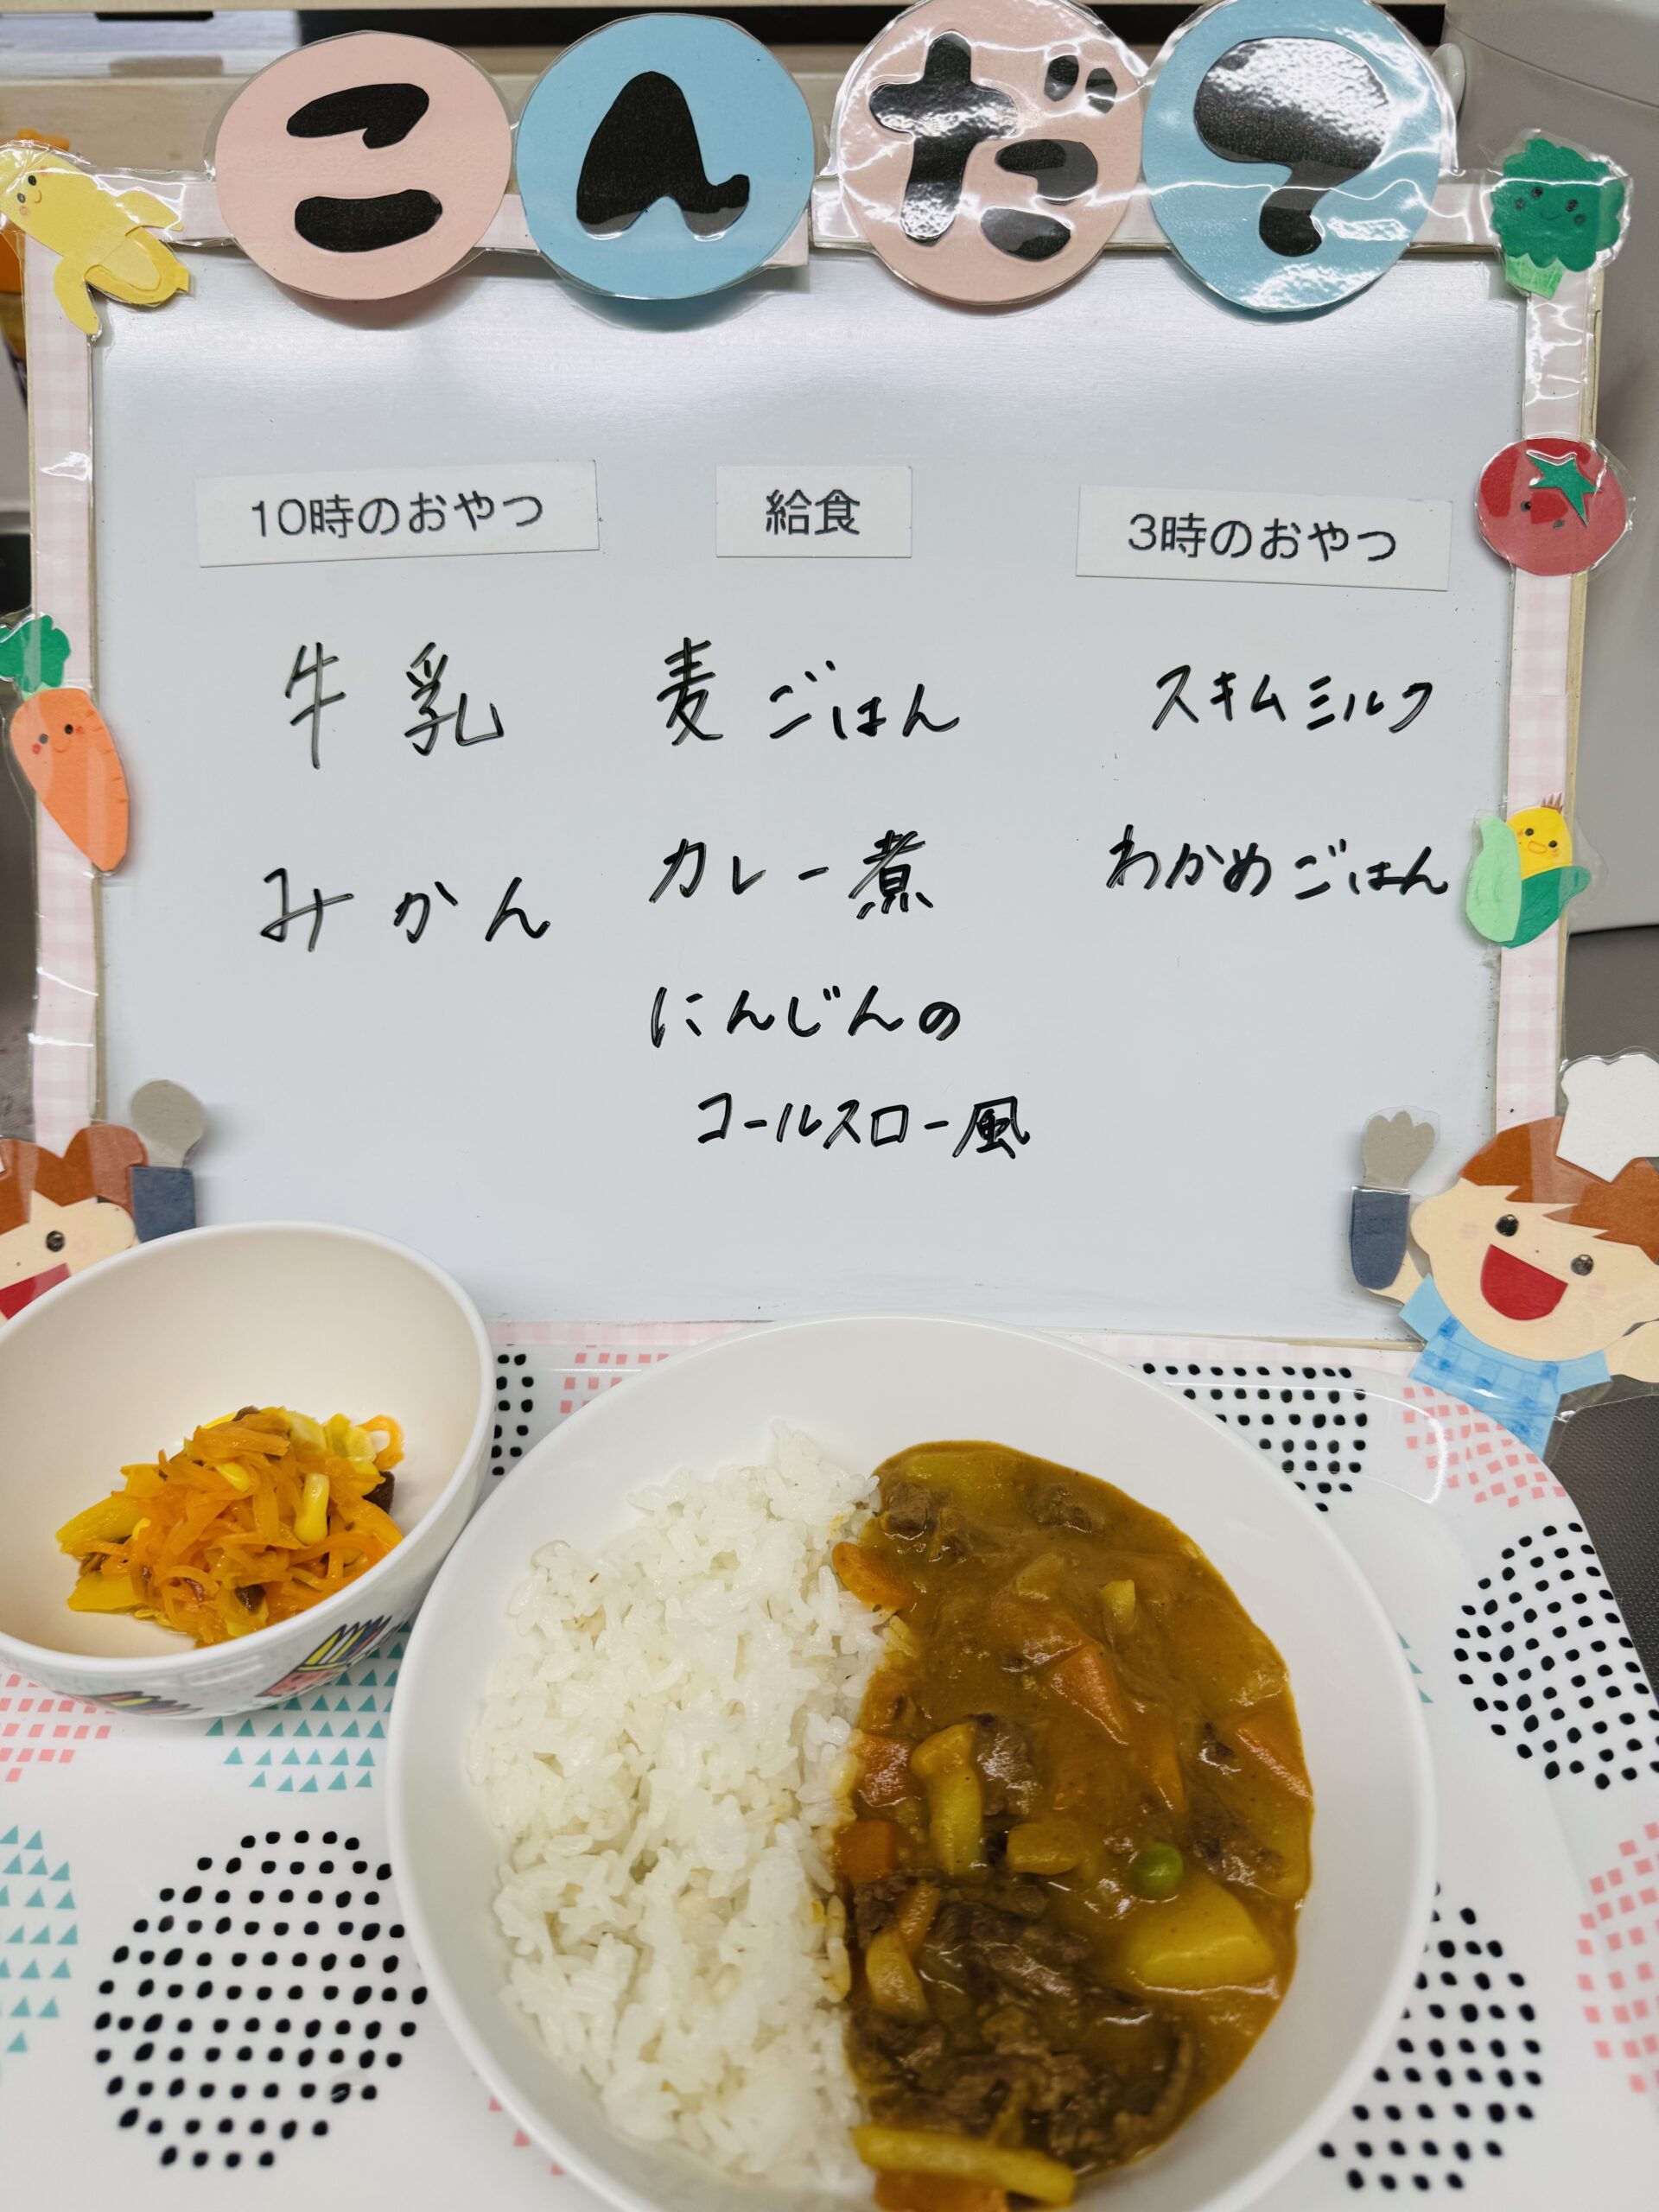 こんだて
10時のおやつ
牛乳
みかん
給食
麦ごはん
カレー煮
にんじんの
コールスロー風
3時のおやつ
スキムミルク
わかめごはん